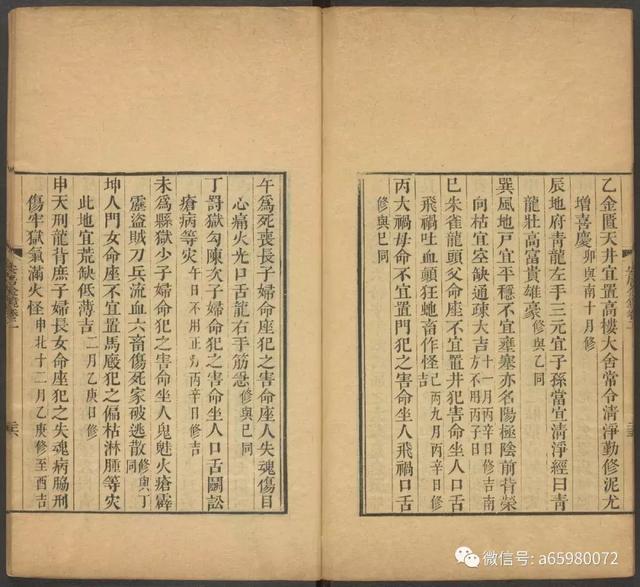 乙金匱天井宜置高樓大舍常令清淨勤修泥尤
增喜慶卯與南十月修
辰地府青龍左手三元宜子孫當宜清淨經曰青
龍壯高富貴雄豪修與乙同
巽風地戸宜平穩不宜壅塞亦名陽極陰前背榮
向枯宜空缺通疎大吉十一月丙辛日修吉南方不用丙子日
巳朱雀龍頭父命座不宜置井犯之害命坐人口舌
飛禍吐血顛狂虵畜作怪巳丙九月丙辛日修吉
丙大禍母命不宜置門犯之害命坐人飛禍口舌
修與巳同
午爲死喪長子婦命座犯之害命座人失魂傷目
心痛火光口舌龍右手筋急修與巳同
丁罰獄勾陳次子婦命犯之害命坐人口舌鬭訟
瘡病等災午日不用正月丙辛日修吉
未爲縣獄少子婦命犯之害命坐人鬼魅火瘡霹
靂盜賊刀兵流血六畜傷死家破逃散修與丁同
坤人門女命座不宜置馬廄犯之偏枯淋腫等災
此地宜荒缺低薄吉二月乙庚日修
申天刑龍背庶子婦長女命座犯之失魂病脇刑
傷牢獄氣滿火怪申北十二月乙庚修至酉吉
微信号: a65980072